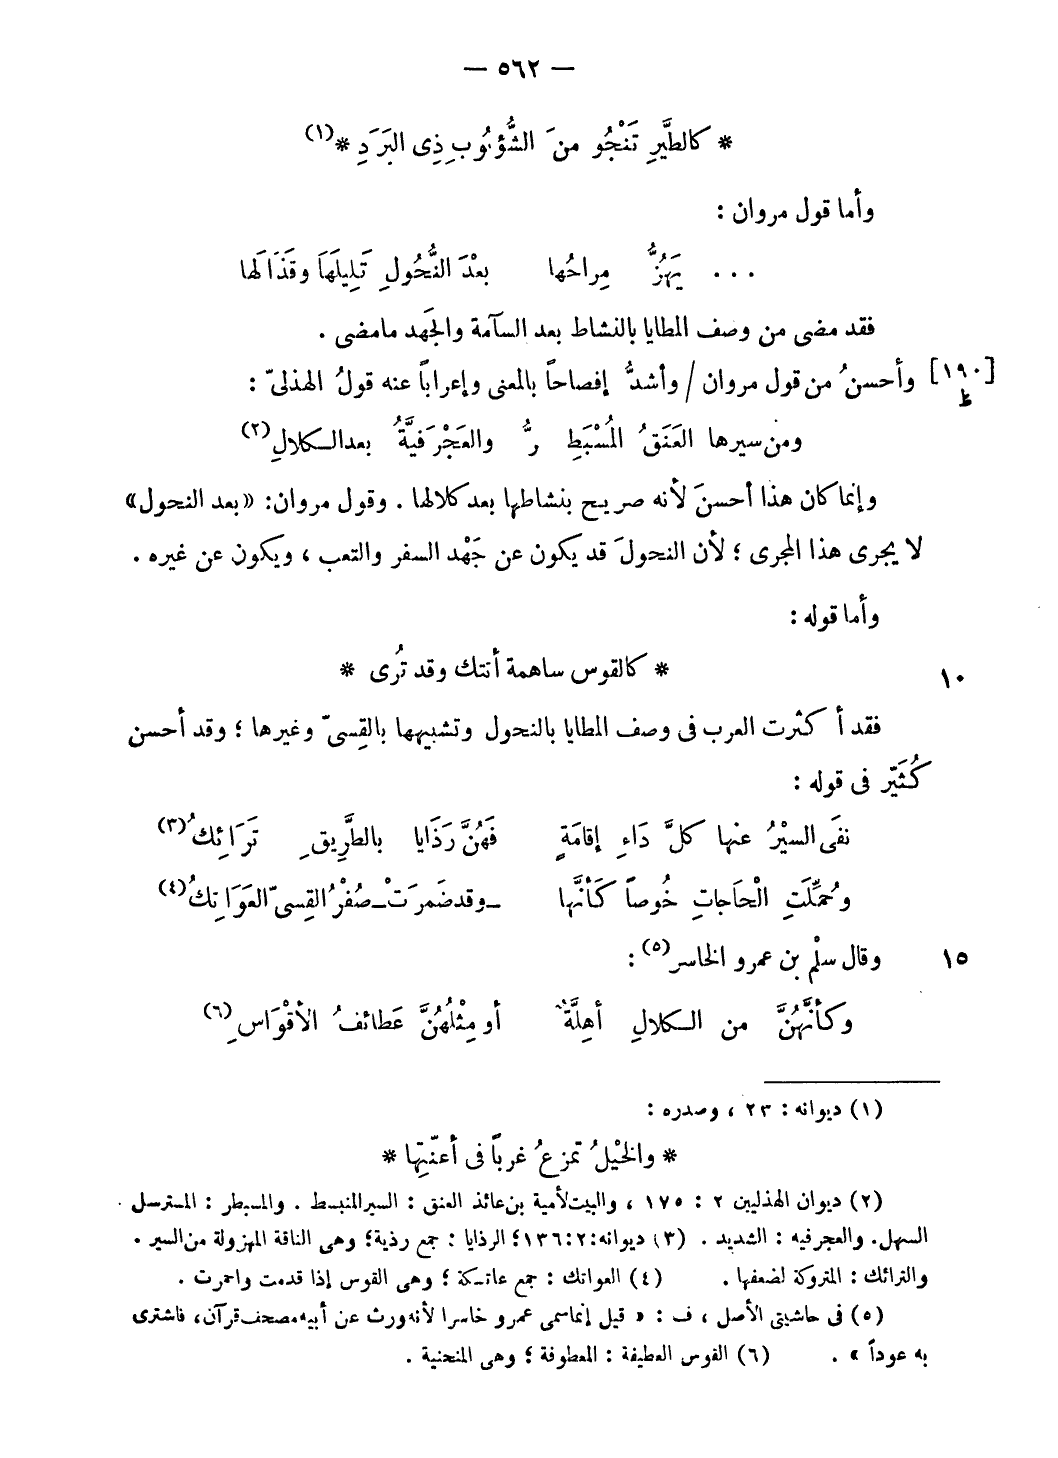 — ٥٦٢ —
* كالطَّيرِ تَنْجُو منَ الشُّؤبُوبِ ذِى البَرَدِ *(١)
وأما قول مروان :
... يَهزُّ مِراحُها بعْدَ النُّحُولِ تَلِيلَهَا وقَذَالَها
فقد مضى من وصف المطايا بالنشاط بعد السآمة والجَهد مامضى .
[١٩٠ ظ] وأحسنُ من قول مروان / وأشدُّ إفصاحاً بالمعنى وإعراباً عنه قولُ الهذلىّ :
ومن سيرها العَنَقُ المُسْبَطِ رُّ والعَجْرَفيَّةُ بعد الكلالِ(٢)
وإنما كان هذا أحسنَ لأنه صريح بنشاطها بعد كلالها . وقول مروان: «بعد النحول»
لا يجرى هذا المجرى ؛ لأن النحولَ قد يكون عن جَهْد السفر والتعب ، ويكون عن غيره .
وأما قوله :
* كالقوس ساهمة أتتك وقد تُرى * ١٠
فقد أكثرت العرب فى وصف المطايا بالنحول وتشبيهها بالقِسىّ وغيرها ؛ وقد أحسن
كُثَيّر فى قوله :
نفَى السيْرُ عنها كلَّ دَاءِ إقامَةٍ فَهُنَّ رَذَايا بالطَّرِيقِ تَرَائِكُ(٣)
وحُمِّلَتِ الْحَاجاتِ خُوصاً كَأنَّها ــ وقد ضَمرَتْ ــ صُفْرُ القِسىّ العَوَاتِكُ(٤)
وقال سلْم بن عمرو الخاسر(٥) : ١٥
وكأنَّهُنَّ من الكلالِ أهِلَّةٌ أو مِثْلُهُنَّ عَطائفُ الأقْوَاسِ(٦)
(١) ديوانه : ٢٣ ، وصدره :
* والخيْلُ تمزعُ غرباً فى أعنّتِها *
(٢) ديوان الهذليين ٢ : ١٧٥ ، والبيت لأمية بن عائذ العنق : السير المنبسط . والمسبطر : المسترسل
السهل. والعجرفيه : الشديد . (٣) ديوانه:٢:١٣٦؛ الرذايا : جمع رذية؛ وهى الناقة المهزولة من السير .
والترائك : المتروكة لضعفها . (٤) العواتك : جمع عاتكة ؛ وهى القوس إذا قدمت واحمرت .
(٥) فى حاشيتى الأصل ، ف : « قيل إنما سمى عمرو خاسرا لأنه ورث عن أبيه مصحف قرآن، فاشترى
به عوداً » . (٦) القوس العطيفة : المعطوفة ؛ وهى المنحنية .